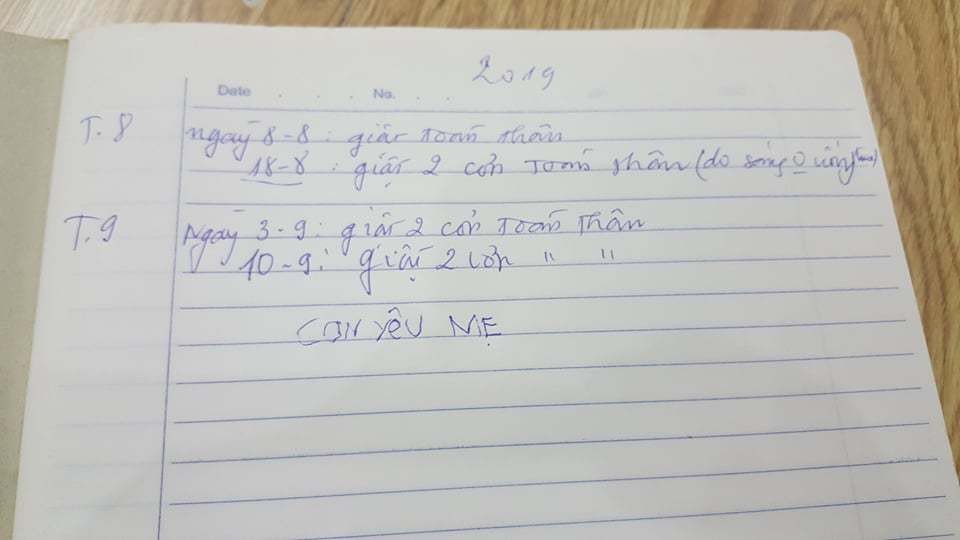 2019
Date . . . No. . .
T.8 ngày 8-8: giật toàn thân
18-8: giật 2 cơn toàn thân (do sáng 0 uống thuốc)
T.9 Ngày 3-9: giật 2 cơn toàn thân
10-9: giật 2 cơn " "
CON YÊU MẸ